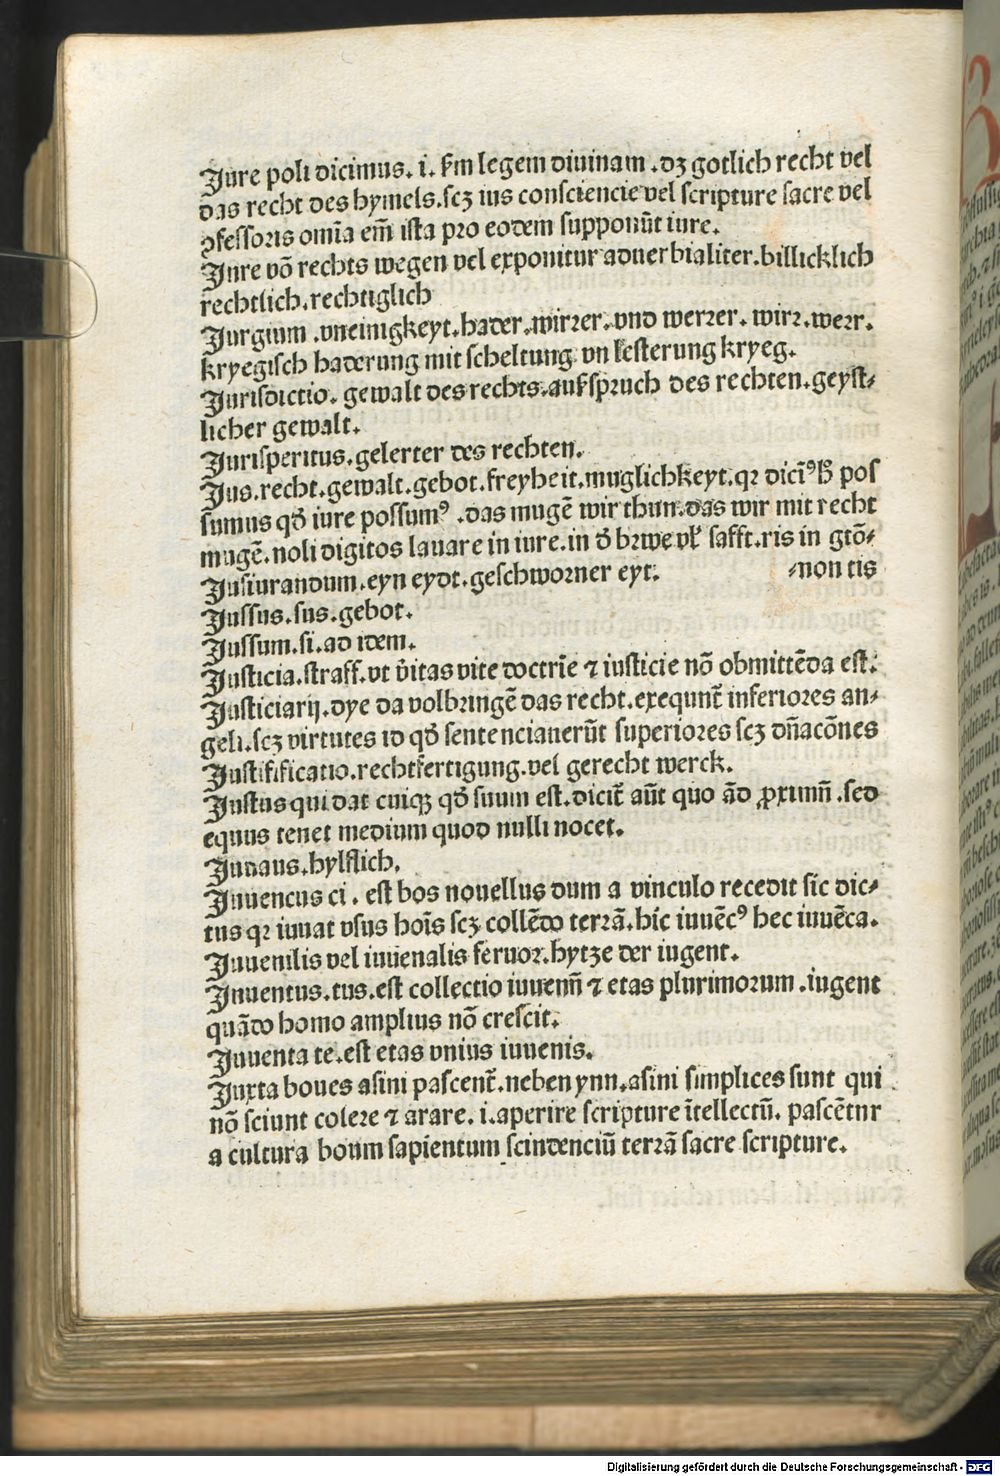 Jure poli dicimus. i. ẜm legem diuinam .dz gotlich recht vel
das recht des hymels.scz ius consciencie vel scripture sacre vel
ꝓfessoris om̄ia em̄ ista pro eodem supponūt iure.
Jure vō rechts wegen vel exponitur aduerbialiter.billicklich
rechtlich.rechtiglich
Jurgium .vneinigkeyt.hader.wirrer.vnd werrer. wirr.werr.
kryegisch haderung mit scheltung vn̄ lesterung kryeg.
Jurisdictio. gewalt des rechts.aufspruch des rechten.geyst⸗
licher gewalt.
Jurisperitus.gelerter des rechten.
Jus.recht.gewalt.gebot.freyheit.muglichkeyt.qꝛ dicīꝰ pos
sumus qď iure possumꝰ .das mugē wir thun.das wir mit recht
mugē.noli digitos lauare in iure.in safft.ris in gtō⸗
Jusiurandum.eyn eydt.geschworner eyt. ⸗non tis
Jussus.sus.gebot.
Jussum.si.ad idem.
Justicia.straff.vt v̄itas vite doctrīe ⁊ iusticie nō obmittēda est.
Justiciarij.dye da volbringē das recht.exequnt̄ inferiores an⸗
geli.scz virtutes id qď sentenciauerūt superiores scz dn̄acōnes
Justififificatio.rechtfertigung.vel gerecht werck.
Justus qui dat cuiqꝫ qď suum est.dicit̄ aūt quo ād ꝓximū .sed
equus tenet medium quod nulli nocet.
Juuaus.hylflich.
Juuencus ci . est bos nouellus dum a vinculo recedit sic dic⸗
tus qꝛ iuuat vsus hoīs scz collēdo terrā.hic iuuēcꝰ hec iuuēca.
Juuenilis vel iuuenalis feruor.hytze der iugent.
Juuentus.tus.est collectio iuuenū ⁊ etas plurimorum .iugent
quādo homo amplius nō crescit.
Juuenta te.est etas vnius iuuenis.
Juxta boues asini pascent̄.neben ynn.asini simplices sunt qui
nō sciunt colere ⁊ arare. i.aperire scripture ītellectū. pascētur
a cultura boum sapientum scindenciū terrā sacre scripture.
Digitalisierung gefördert durch die Deutsche Forschungsgemeinschaft - DFG